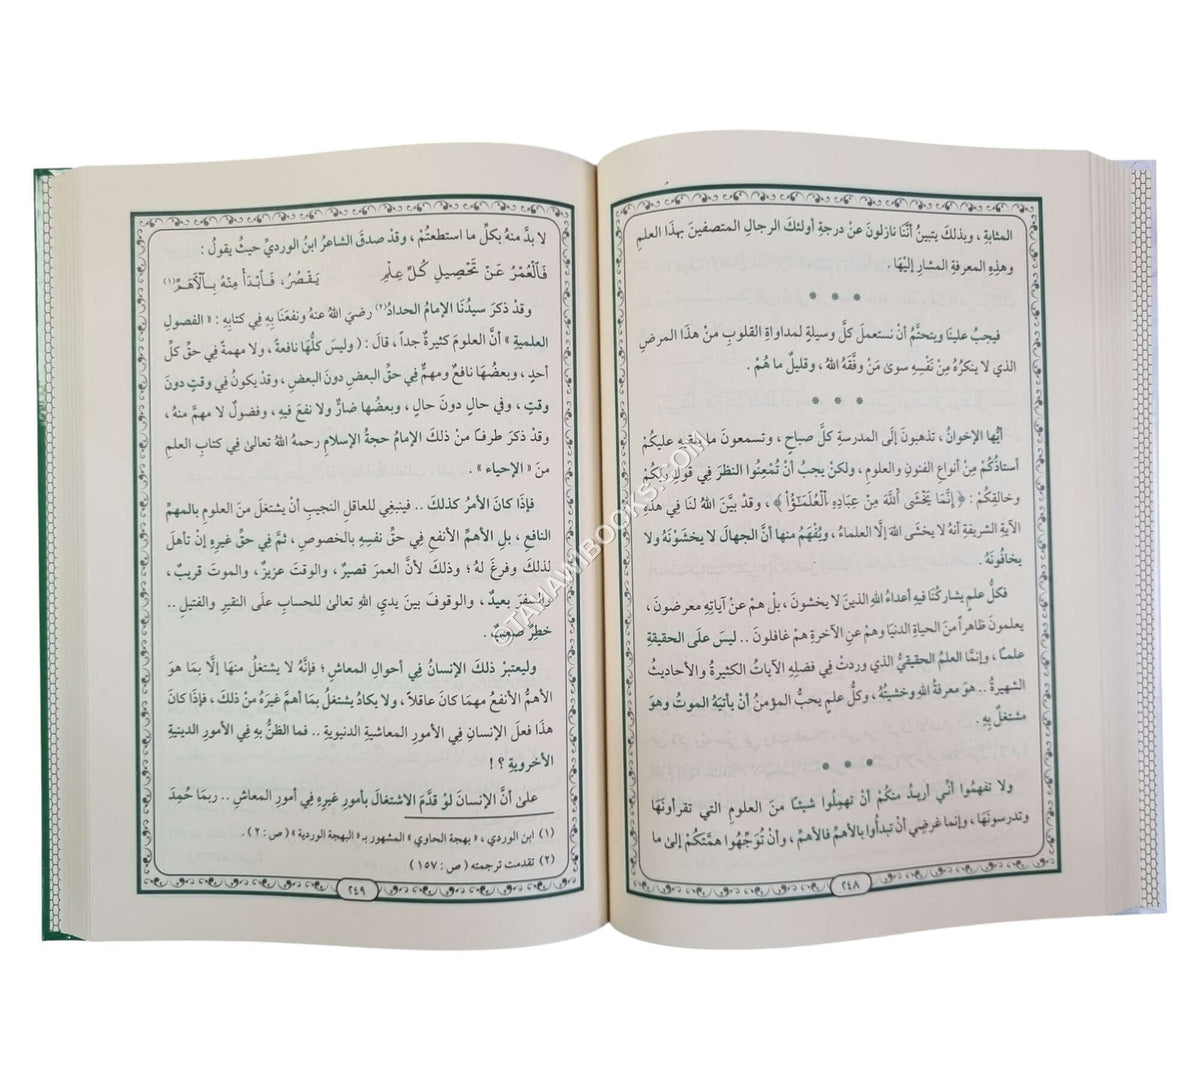 المثابةِ ، وبذلكَ يتبينُ أنَّنا نازلونَ عنْ درجةِ أولئكَ الرجالِ المتصفينَ بهذا العلمِ
وهذهِ المعرفةِ المشارِ إليْها .
* * *
فيجبُ علينا ويتحتَّمُ أنْ نستعملَ كلَّ وسيلةٍ لمداواةِ القلوبِ منْ هذا المرضِ
الذي لا ينكرُهُ مِنْ نَفْسِهِ سوىٰ مَنْ وفَّقَهُ اللهُ ، وقليلٌ ما هُمْ .
* * *
أيُّها الإخوانُ ، تذهبونَ إلَى المدرسةِ كلَّ صباحٍ ، وتسمعونَ ما يلقيهِ عليكُمْ
أستاذُكُمْ مِنْ أنواعِ الفنونِ والعلومِ ، ولكنْ يجبُ أنْ تُمْعِنُوا النظرَ فِي قولِ ربِّكُمْ
وخالقِكُمْ : ﴿ إِنَّمَا يَخْشَى ٱللَّهَ مِنْ عِبَادِهِ ٱلْعُلَمَـٰٓؤُاْ ﴾ ، وقدْ بيَّنَ اللهُ لنا فِي هذهِ
الآيةِ الشريفةِ أنهُ لا يخشَى اللهَ إلَّا العلماءُ ، ويُفْهَمُ منها أنَّ الجهالَ لا يخشَوْنَهُ ولا
يخافُونَهُ .
فكلُّ علمٍ يشاركُنا فيهِ أعداءُ اللهِ الذينَ لا يخشونَ ، بلْ همْ عنْ آياتِهِ معرضونَ ،
يعلمونَ ظاهراً منَ الحياةِ الدنيا وهمْ عنِ الآخرةِ همْ غافلونَ .. ليسَ علَى الحقيقةِ
علماً ، وإنَّما العلمُ الحقيقيُّ الذي وردتْ فِي فضلِهِ الآياتُ الكثيرةُ والأحاديثُ
الشهيرةُ .. هوَ معرفةُ اللهِ وخشيتُهُ ، وكلُّ علمٍ يحبُّ المؤمنُ أنْ يأتيَهُ الموتُ وهوَ
مشتغلٌ بهِ .
* * *
ولا تفهمُوا أنِّي أريدُ منكُمْ أنْ تهمِلُوا شيئاً منَ العلومِ التي تقرأونَهَا
وتدرسونَهَا ، وإنما غرضِي أنْ تبدأُوا بالأهمِّ فالأهمِّ ، وأنْ تُوَجِّهُوا همَّتَكُمْ إلىٰ ما
٢٤٨
لا بدَّ منهُ بكلِّ ما استطعتُمْ ، وقدْ صدقَ الشاعرُ ابنُ الورديِّ حيثُ يقولُ :
فَٱلْعُمْرُ عَنْ تَحْصِيلِ كُلِّ عِلْمِ يَقْصُرُ، فَٱبْدَأْ مِنْهُ بِـٱلْأَهَمِّ(١)
وقدْ ذكرَ سيدُنَا الإمامُ الحدادُ(٢) رضيَ اللهُ عنهُ ونفعَنَا بِهِ فِي كتابِهِ : « الفصولِ
العلميةِ » أنَّ العلومَ كثيرةٌ جداً ، قالَ : ( وليسَ كلُّها نافعةً ، ولا مهمةً فِي حقِّ كلِّ
أحدٍ ، وبعضُهَا نافعٌ ومهمٌّ فِي حقِّ البعضِ دونَ البعضِ ، وقدْ يكونُ فِي وقتٍ دونَ
وقتٍ ، وفي حالٍ دونَ حالٍ ، وبعضُها ضارٌّ ولا نفعَ فيهِ ، وفضولٌ لا مهمَّ منهُ ،
وقدْ ذكرَ طرفاً منْ ذلكَ الإمامُ حجةُ الإسلامِ رحمهُ اللهُ تعالىٰ فِي كتابِ العلمِ
منَ « الإحياءِ » .
فإذَا كانَ الأمرُ كذلكَ .. فينبغِي للعاقلِ النجيبِ أنْ يشتغلَ منَ العلومِ بالمهمِّ
النافعِ ، بلِ الأهمِّ الأنفعِ فِي حقِّ نفسِهِ بالخصوصِ ، ثمَّ فِي حقِّ غيرِهِ إنْ تأهلَ
لذلكَ وفرغَ لهُ ؛ وذلكَ لأنَّ العمرَ قصيرٌ ، والوقتَ عزيزٌ ، والموتَ قريبٌ ،
والسفرَ بعيدٌ ، والوقوفَ بينَ يديِ اللهِ تعالىٰ للحسابِ علَى النقيرِ والفتيلِ ..
خطِرٌ صعبٌ .
وليعتبرْ ذلكَ الإنسانُ فِي أحوالِ المعاشِ ؛ فإنَّهُ لا يشتغلُ منهَا إلَّا بمَا هوَ
الأهمُّ الأنفعُ مهمَا كانَ عاقلاً ، ولا يكادُ يشتغلُ بمَا أهمَّ غيرَهُ منْ ذلكَ ، فإذَا كانَ
هذا فعلَ الإنسانِ فِي الأمورِ المعاشيةِ الدنيويةِ .. فما الظنُّ بهِ فِي الأمورِ الدينيةِ
الأخرويةِ ؟ !
علىٰ أنَّ الإنسانَ لوْ قدَّمَ الاشتغالَ بأمورِ غيرِهِ فِي أمورِ المعاشِ .. ربمَا حُمِدَ
(١) ابن الوردي ، « بهجة الحاوي » المشهور بـ « البهجة الوردية » ( ص : ٢ ) .
(٢) تقدمت ترجمته ( ص : ١٥٧ )
٢٤٩